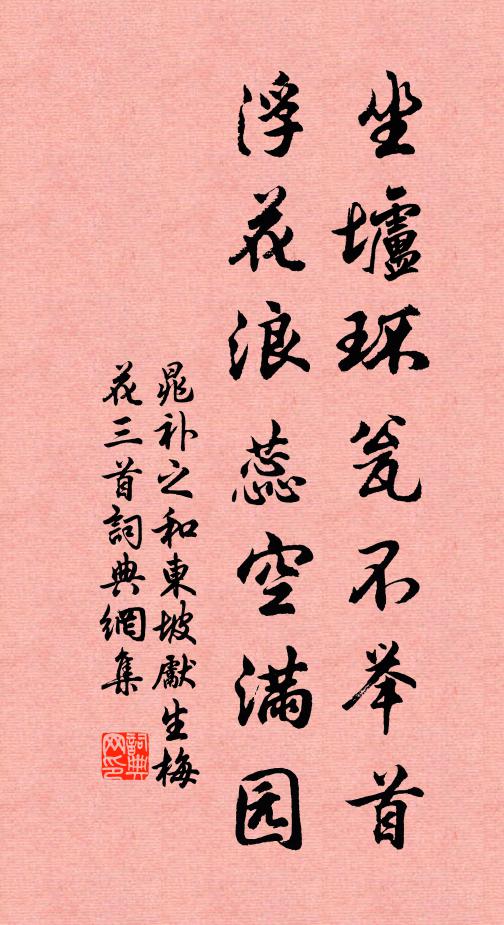 坐垆环瓮不举首
浮花浪蕊空满园
晁补之和東坡獻生梅
花三首詞典網集
詞典
网印